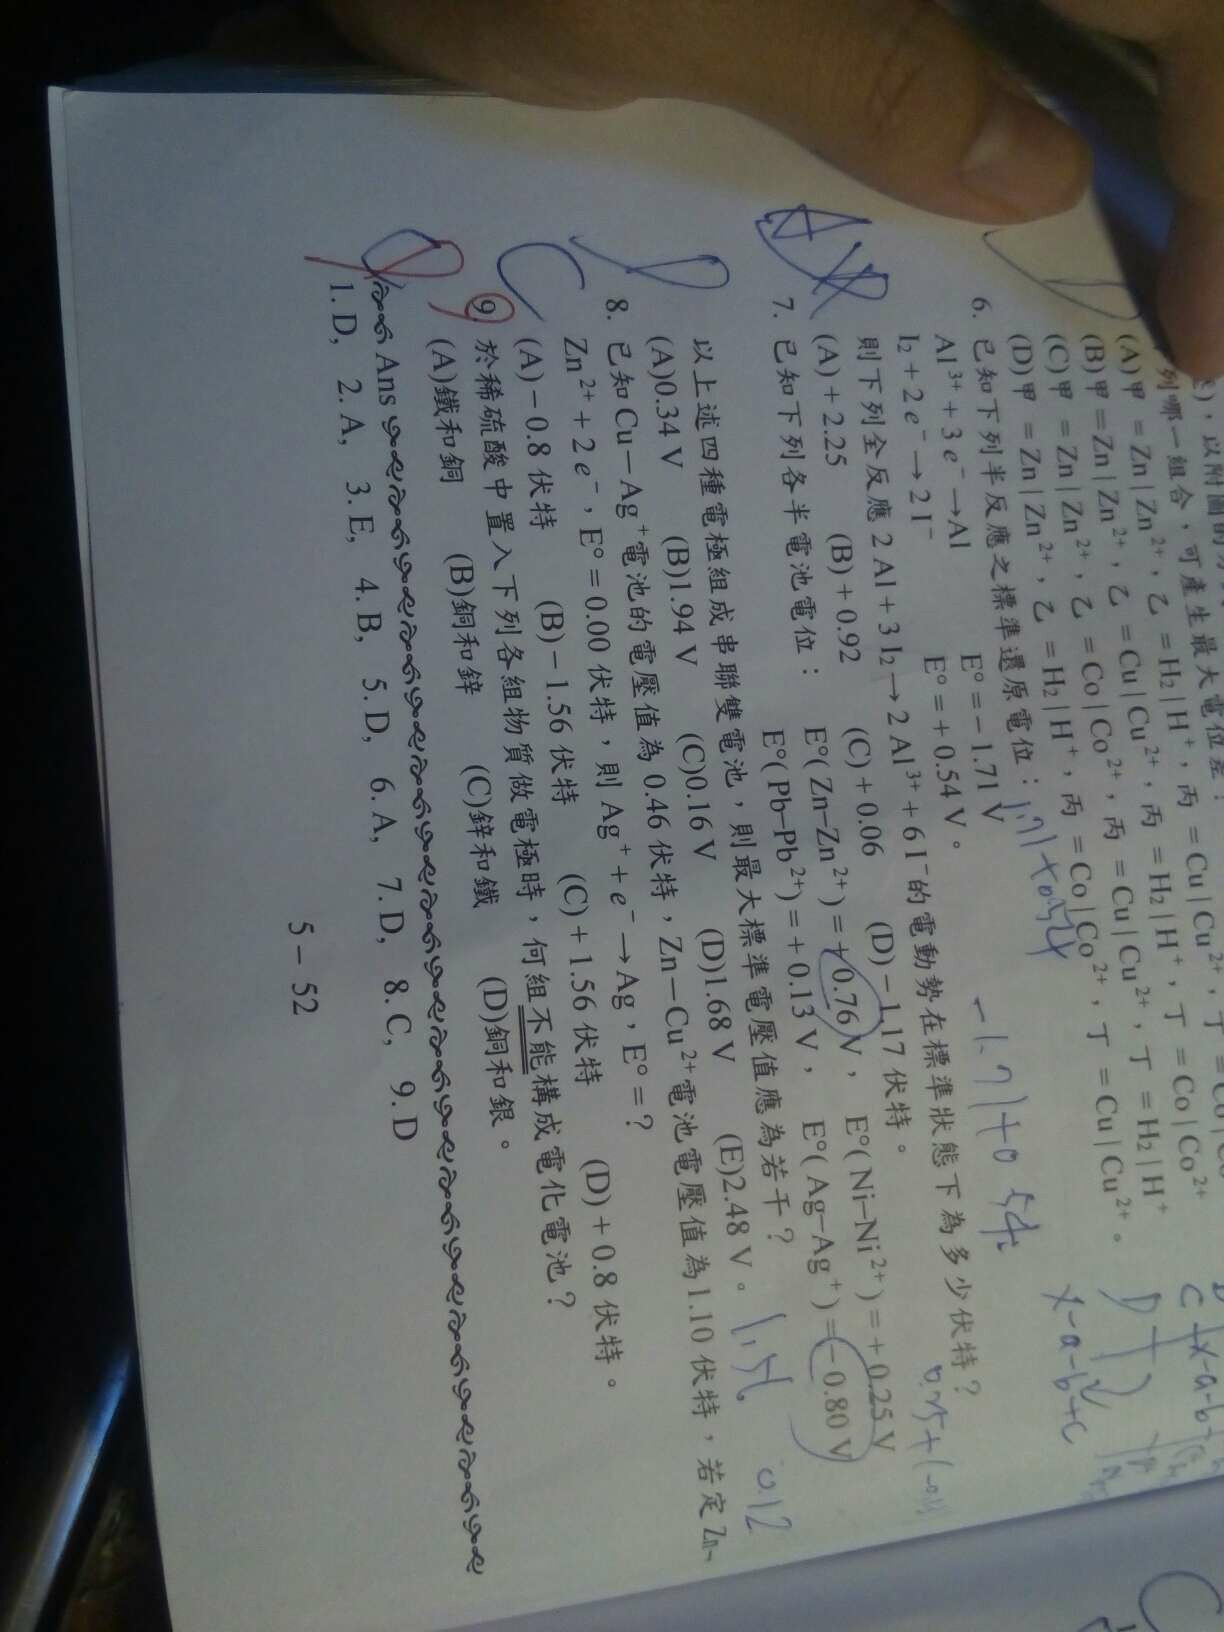 列哪一組合，可產生最大電位差？
(A)甲＝Zn∣Zn²⁺，乙＝H₂∣H⁺，丙＝Cu∣Cu²⁺，丁＝
(B)甲＝Zn∣Zn²⁺，乙＝Cu∣Cu²⁺，丙＝H₂∣H⁺，丁＝Co∣Co²⁺
(C)甲＝Zn∣Zn²⁺，乙＝Co∣Co²⁺，丙＝Cu∣Cu²⁺，丁＝H₂∣H⁺
(D)甲＝Zn∣Zn²⁺，乙＝H₂∣H⁺，丙＝Co∣Co²⁺，丁＝Cu∣Cu²⁺。
6. 已知下列半反應之標準還原電位：
Al³⁺＋3e⁻→Al E°＝－1.71 V
I₂＋2e⁻→2I⁻ E°＝＋0.54 V。
則下列全反應 2Al＋3I₂→2Al³⁺＋6I⁻的電動勢在標準狀態下為多少伏特？
(A)＋2.25 (B)＋0.92 (C)＋0.06 (D)－1.17 伏特。
7. 已知下列各半電池電位：
E°(Zn–Zn²⁺)＝＋0.76 V， E°(Ni–Ni²⁺)＝＋0.25 V
E°(Pb–Pb²⁺)＝＋0.13 V， E°(Ag–Ag⁺)＝－0.80 V
以上述四種電極組成串聯雙電池，則最大標準電壓值應為若干？
(A)0.34 V (B)1.94 V (C)0.16 V (D)1.68 V (E)2.48 V。
8. 已知Cu－Ag⁺電池的電壓值為0.46伏特，Zn－Cu²⁺電池電壓值為1.10伏特，若定Zn→
Zn²⁺＋2e⁻，E°＝0.00伏特，則Ag⁺＋e⁻→Ag，E°＝？
(A)－0.8伏特 (B)－1.56伏特 (C)＋1.56伏特 (D)＋0.8伏特。
9. 於稀硫酸中置入下列各組物質做電極時，何組不能構成電化電池？
(A)鐵和銅 (B)銅和鋅 (C)鋅和鐵 (D)銅和銀。
Ans
1. D, 2. A, 3. E, 4. B, 5. D, 6. A, 7. D, 8. C, 9. D
5－52
1.71+0.54
-1.71+0.54
1.56
0.12
x-a-b+c
C
9